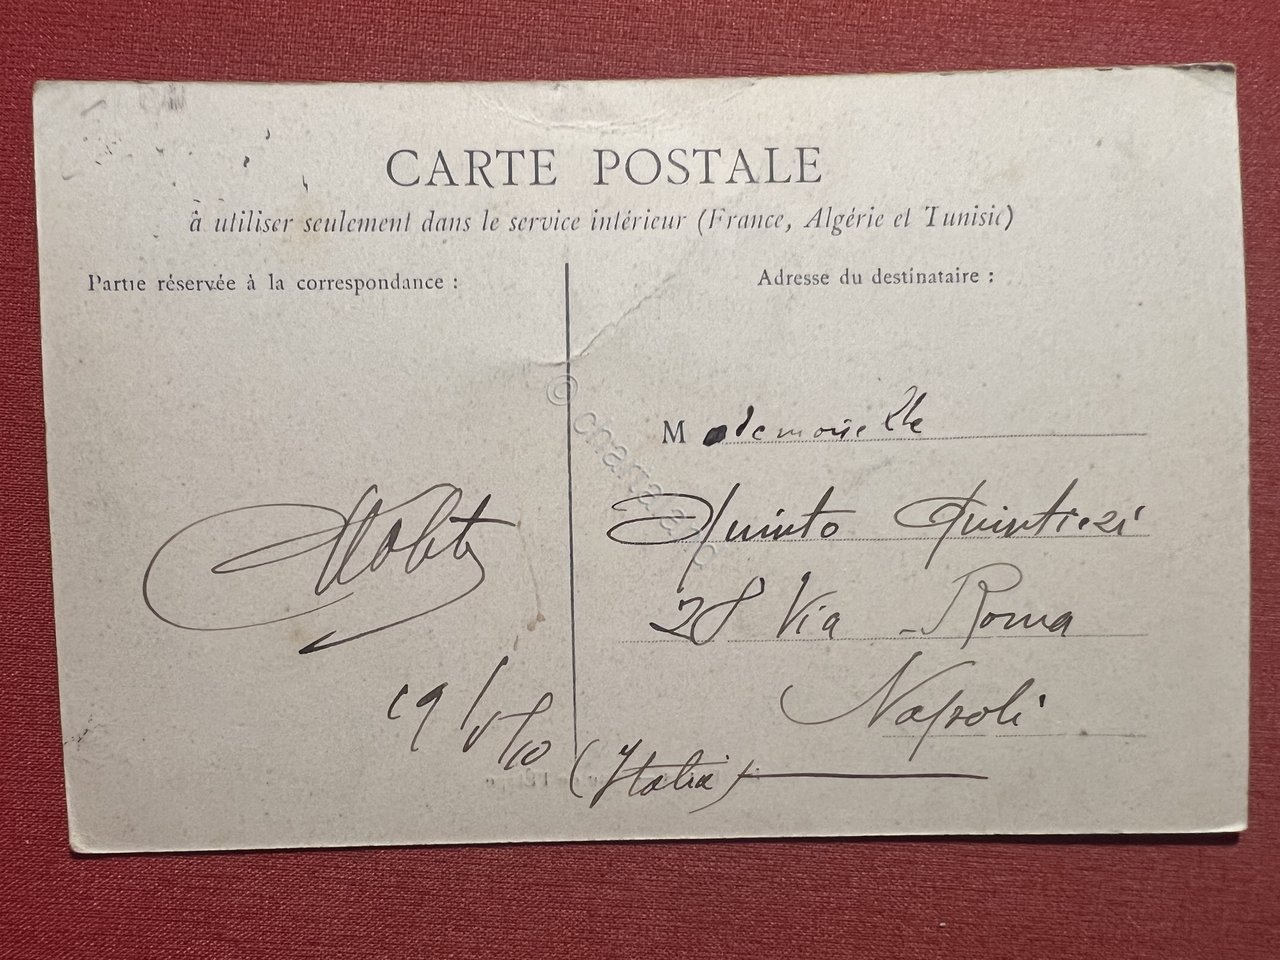 CARTE POSTALE
à utiliser seulement dans le service intérieur (France, Algérie et Tunisie)
Partie réservée à la correspondance :
Adresse du destinataire :
Mademoiselle
Quinto Quintiezi
28 Via Roma
Napoli
(Italia)
19/5/10
© charta.an